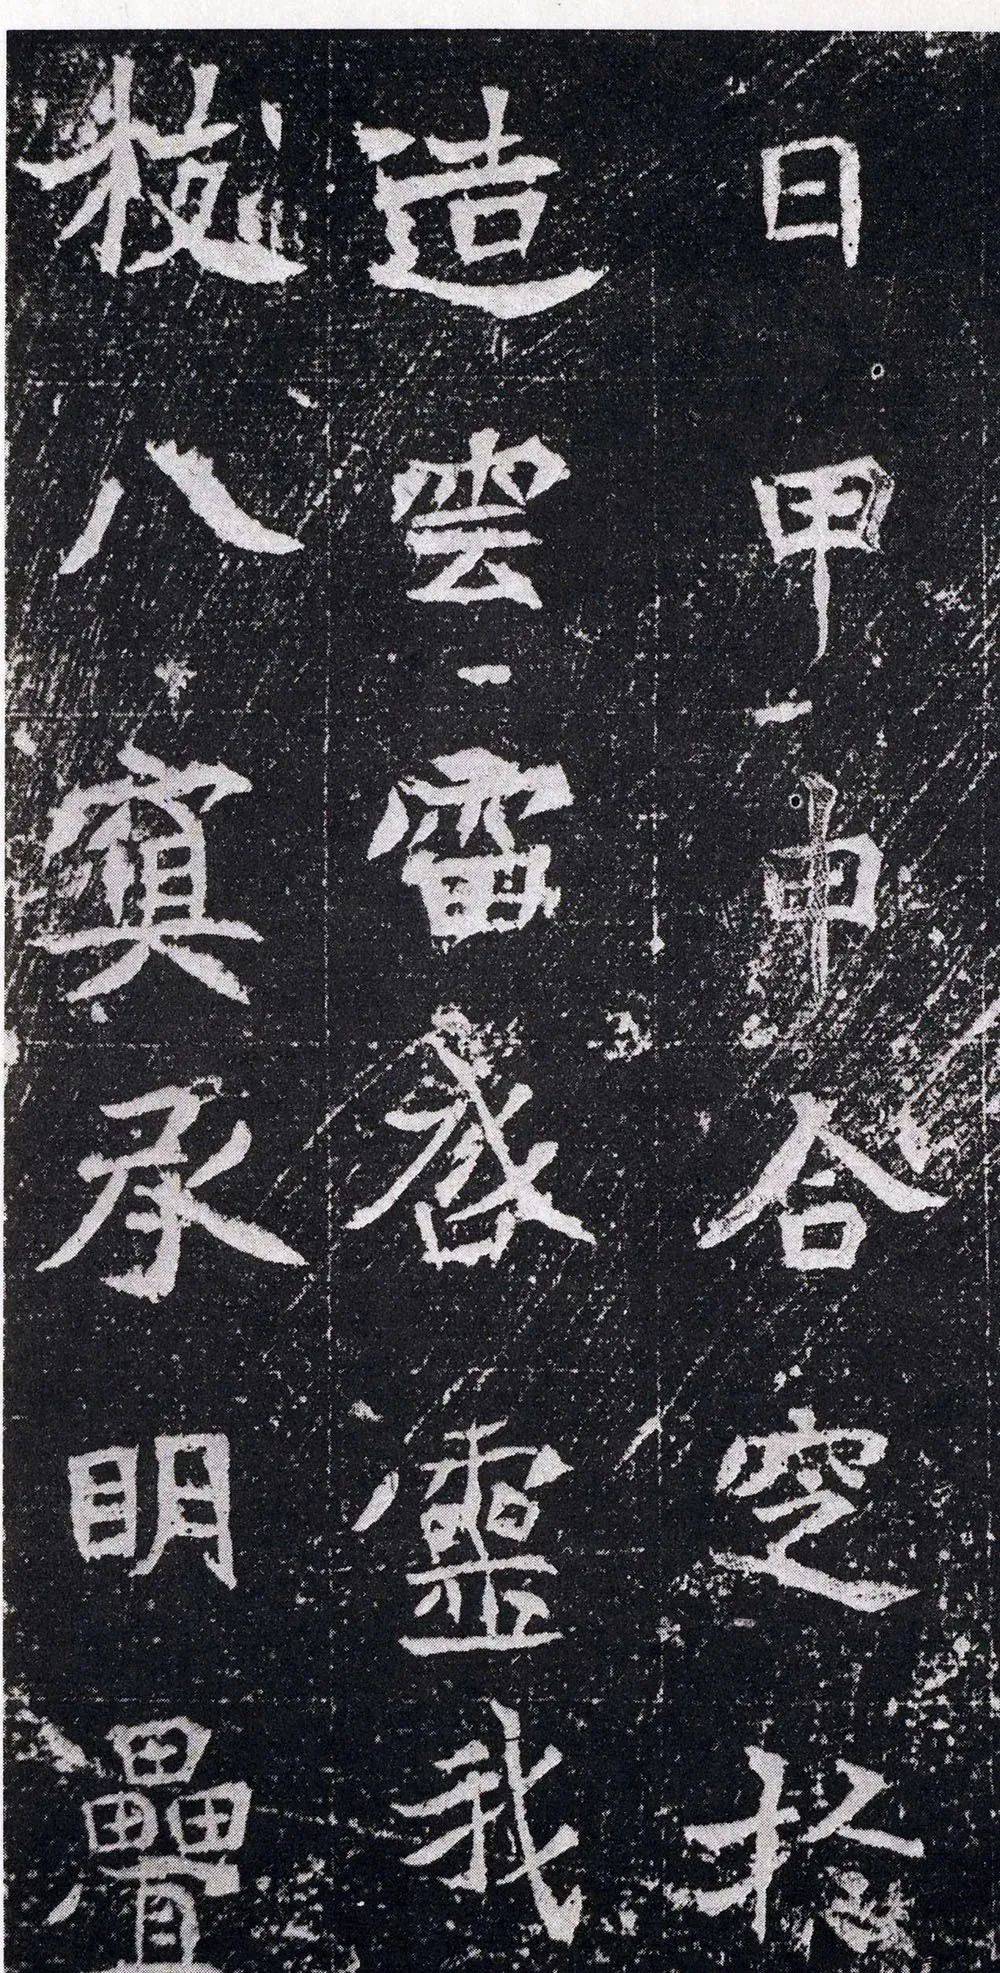 日甲申合窆於
造雲雷啓靈我
八寘承明疊